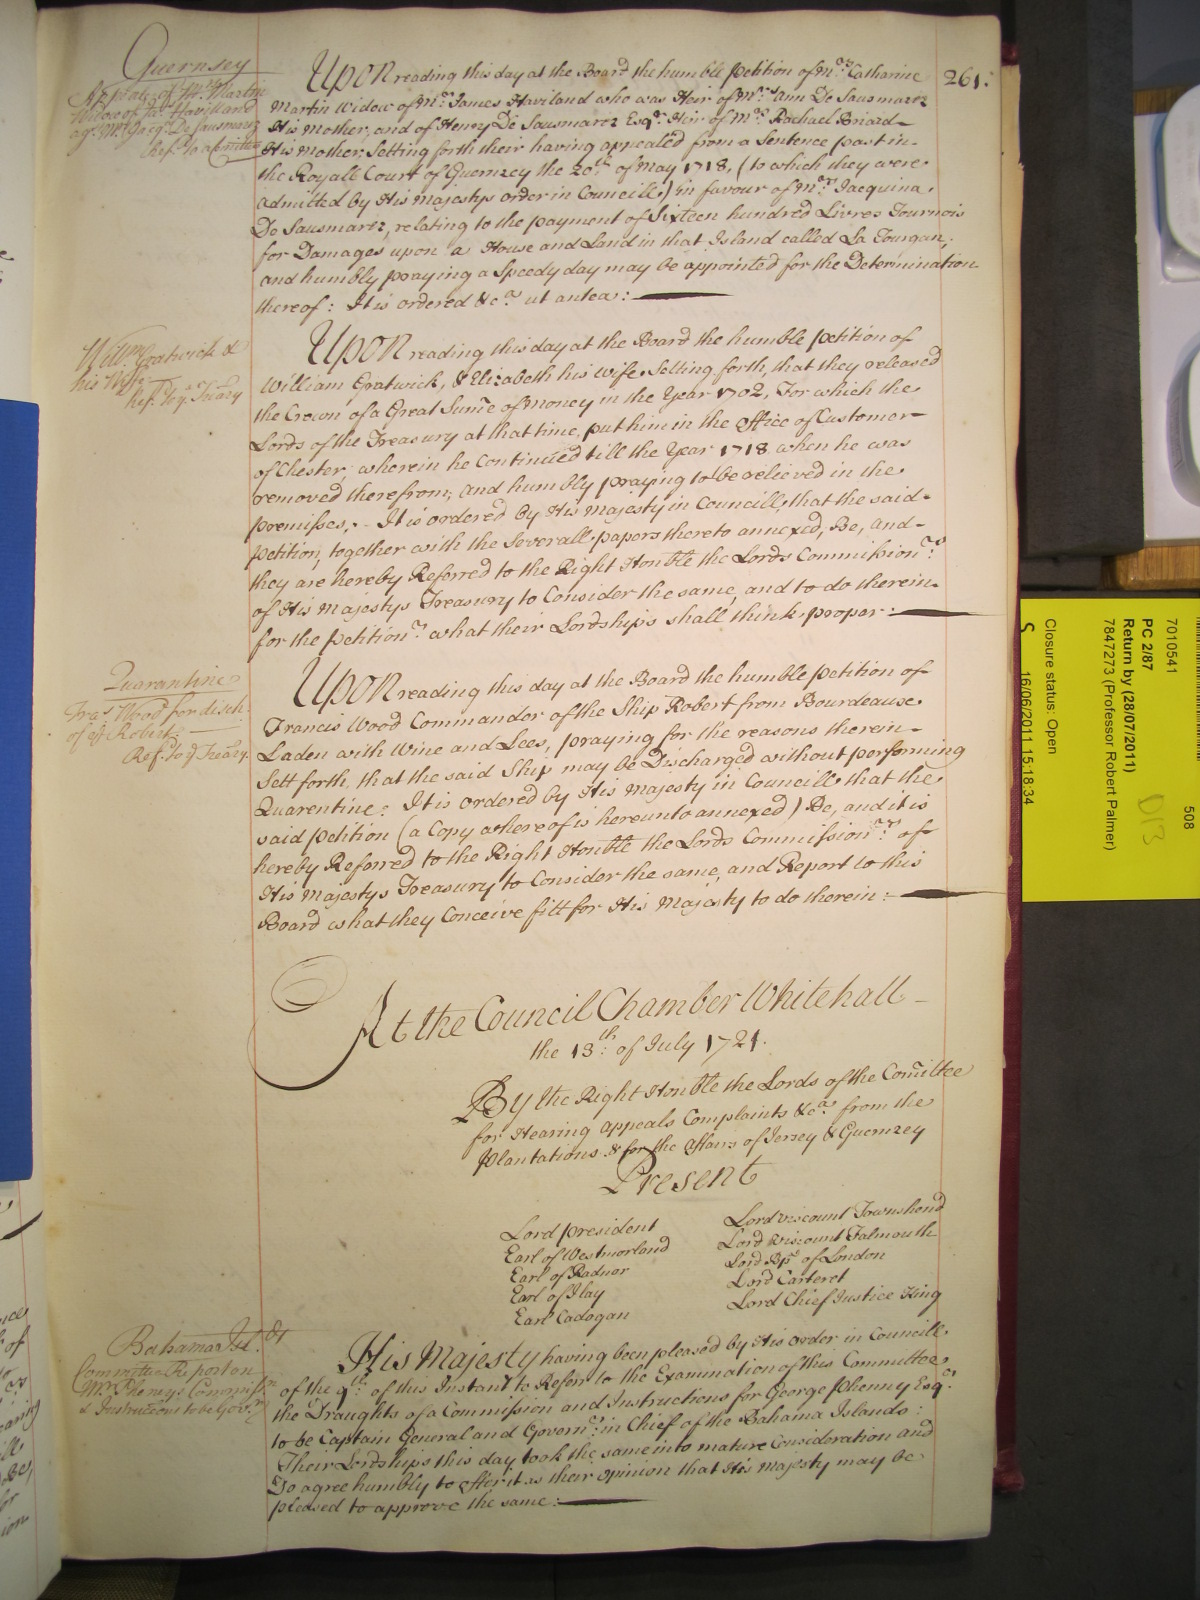 261.
Guernsey
Appeale of Mrs Martin
Widow of Ja: Havilland
agt. Mrs Jacq. De Sausmarez
Refd. to a Comittee
Upon reading this day at the Board the humble Petition of Mrs. Catharine
Martin Widow of Mr. James Haviland who was Heir of Mrs. Ann De Sausmarez
His Mother, and of Henry De Sausmarez Esqr. Heir of Mrs. Rachael Briard
His Mother, Setting forth their having appealed from a Sentence past in
the Royall Court of Guernzey the 20th. of May 1718, (to which they were
admitted by His Majestys order in Councill) in favour of Mrs. Jacquina
De Sausmarez, relating to the payment of Sixteen hundred Livres Tournois
for Damages upon a House and Land in that Island called La Tourgan,
and humbly praying a Speedy day may be appointed for the Determination
thereof: It is ordered &ca. ut antea:
Willm Gratwick &
his Wife
Ref. to ye Treãry
Upon reading this day at the Board the humble Petition of
William Gratwick, & Elizabeth his Wife, Setting forth, that they released
the Crown of a Great Sume of Money in the Year 1702, For which the
Lords of the Treasury at that time, put him in the Office of Customer
of Chester, wherein he Continued till the Year 1718 when he was
removed therefrom; and humbly praying to be relieved in the
premisses. It is ordered by His Majesty in Councill, that the said
Petition, together with the Severall papers thereto annexed, Be, and
they are hereby Referred to the Right Honble the Lords Commissionrs.
of His Majestys Treasury to Consider the same, and to do therein
for the Petitionrs. what their Lordships shall think proper:
Quarantine
Fras Wood for disch.
of ye Robert
Ref. to ye Treãry.
Upon reading this day at the Board the humble Petition of
Francis Wood Commander of the Ship Robert from Bourdeause
Laden with Wine and Lees, praying for the reasons therein
Sett forth, that the said Ship may be Discharged without performing
Quarentine: It is ordered by His Majesty in Councill that the
said Petition (a Copy whereof is hereunto annexed) Be, and it is
hereby Referred to the Right Honble the Lords Commissionrs. of
His Majestys Treasury to Consider the same, and Report to this
Board what they Conceive fitt for His Majesty to do therein:
At the Council Chamber Whitehall
the 13th: of July 1721.
By the Right Honble the Lords of the Comittee
for Hearing appeals Complaints &ca. from the
Plantations & for the Affairs of Jersey & Guernzey
Present
Lord President
Earl of Westmorland
Earl of Radnor
Earl of Ilay
Earl Cadogan
Lord Viscount Townshend
Lord Viscount Falmouth
Lord Bp. of London
Lord Carteret
Lord Chief Justice King
Bahama Isl:ds
Committee Report on
Mr. Phenny's Commission
& Instructions to be Govr.
His Majesty having been pleased by His Order in Councill
of the 9th. of this Instant to Referr to the Examination of this Committee
the Draughts of a Commission and Instructions for George Phenny Esqr.
to be Captain General and Governr. in Chief of the Bahama Islands:
Their Lordships this day took the same into mature Consideration and
Do agree humbly to offer it as their opinion that His Majesty may be
pleased to approve the same:
508
7010541
PC 2/87
Return by (28/07/2011)
7847273 (Professor Robert Palmer)
D13
Closure status: Open
S
16/06/2011 15:18:34